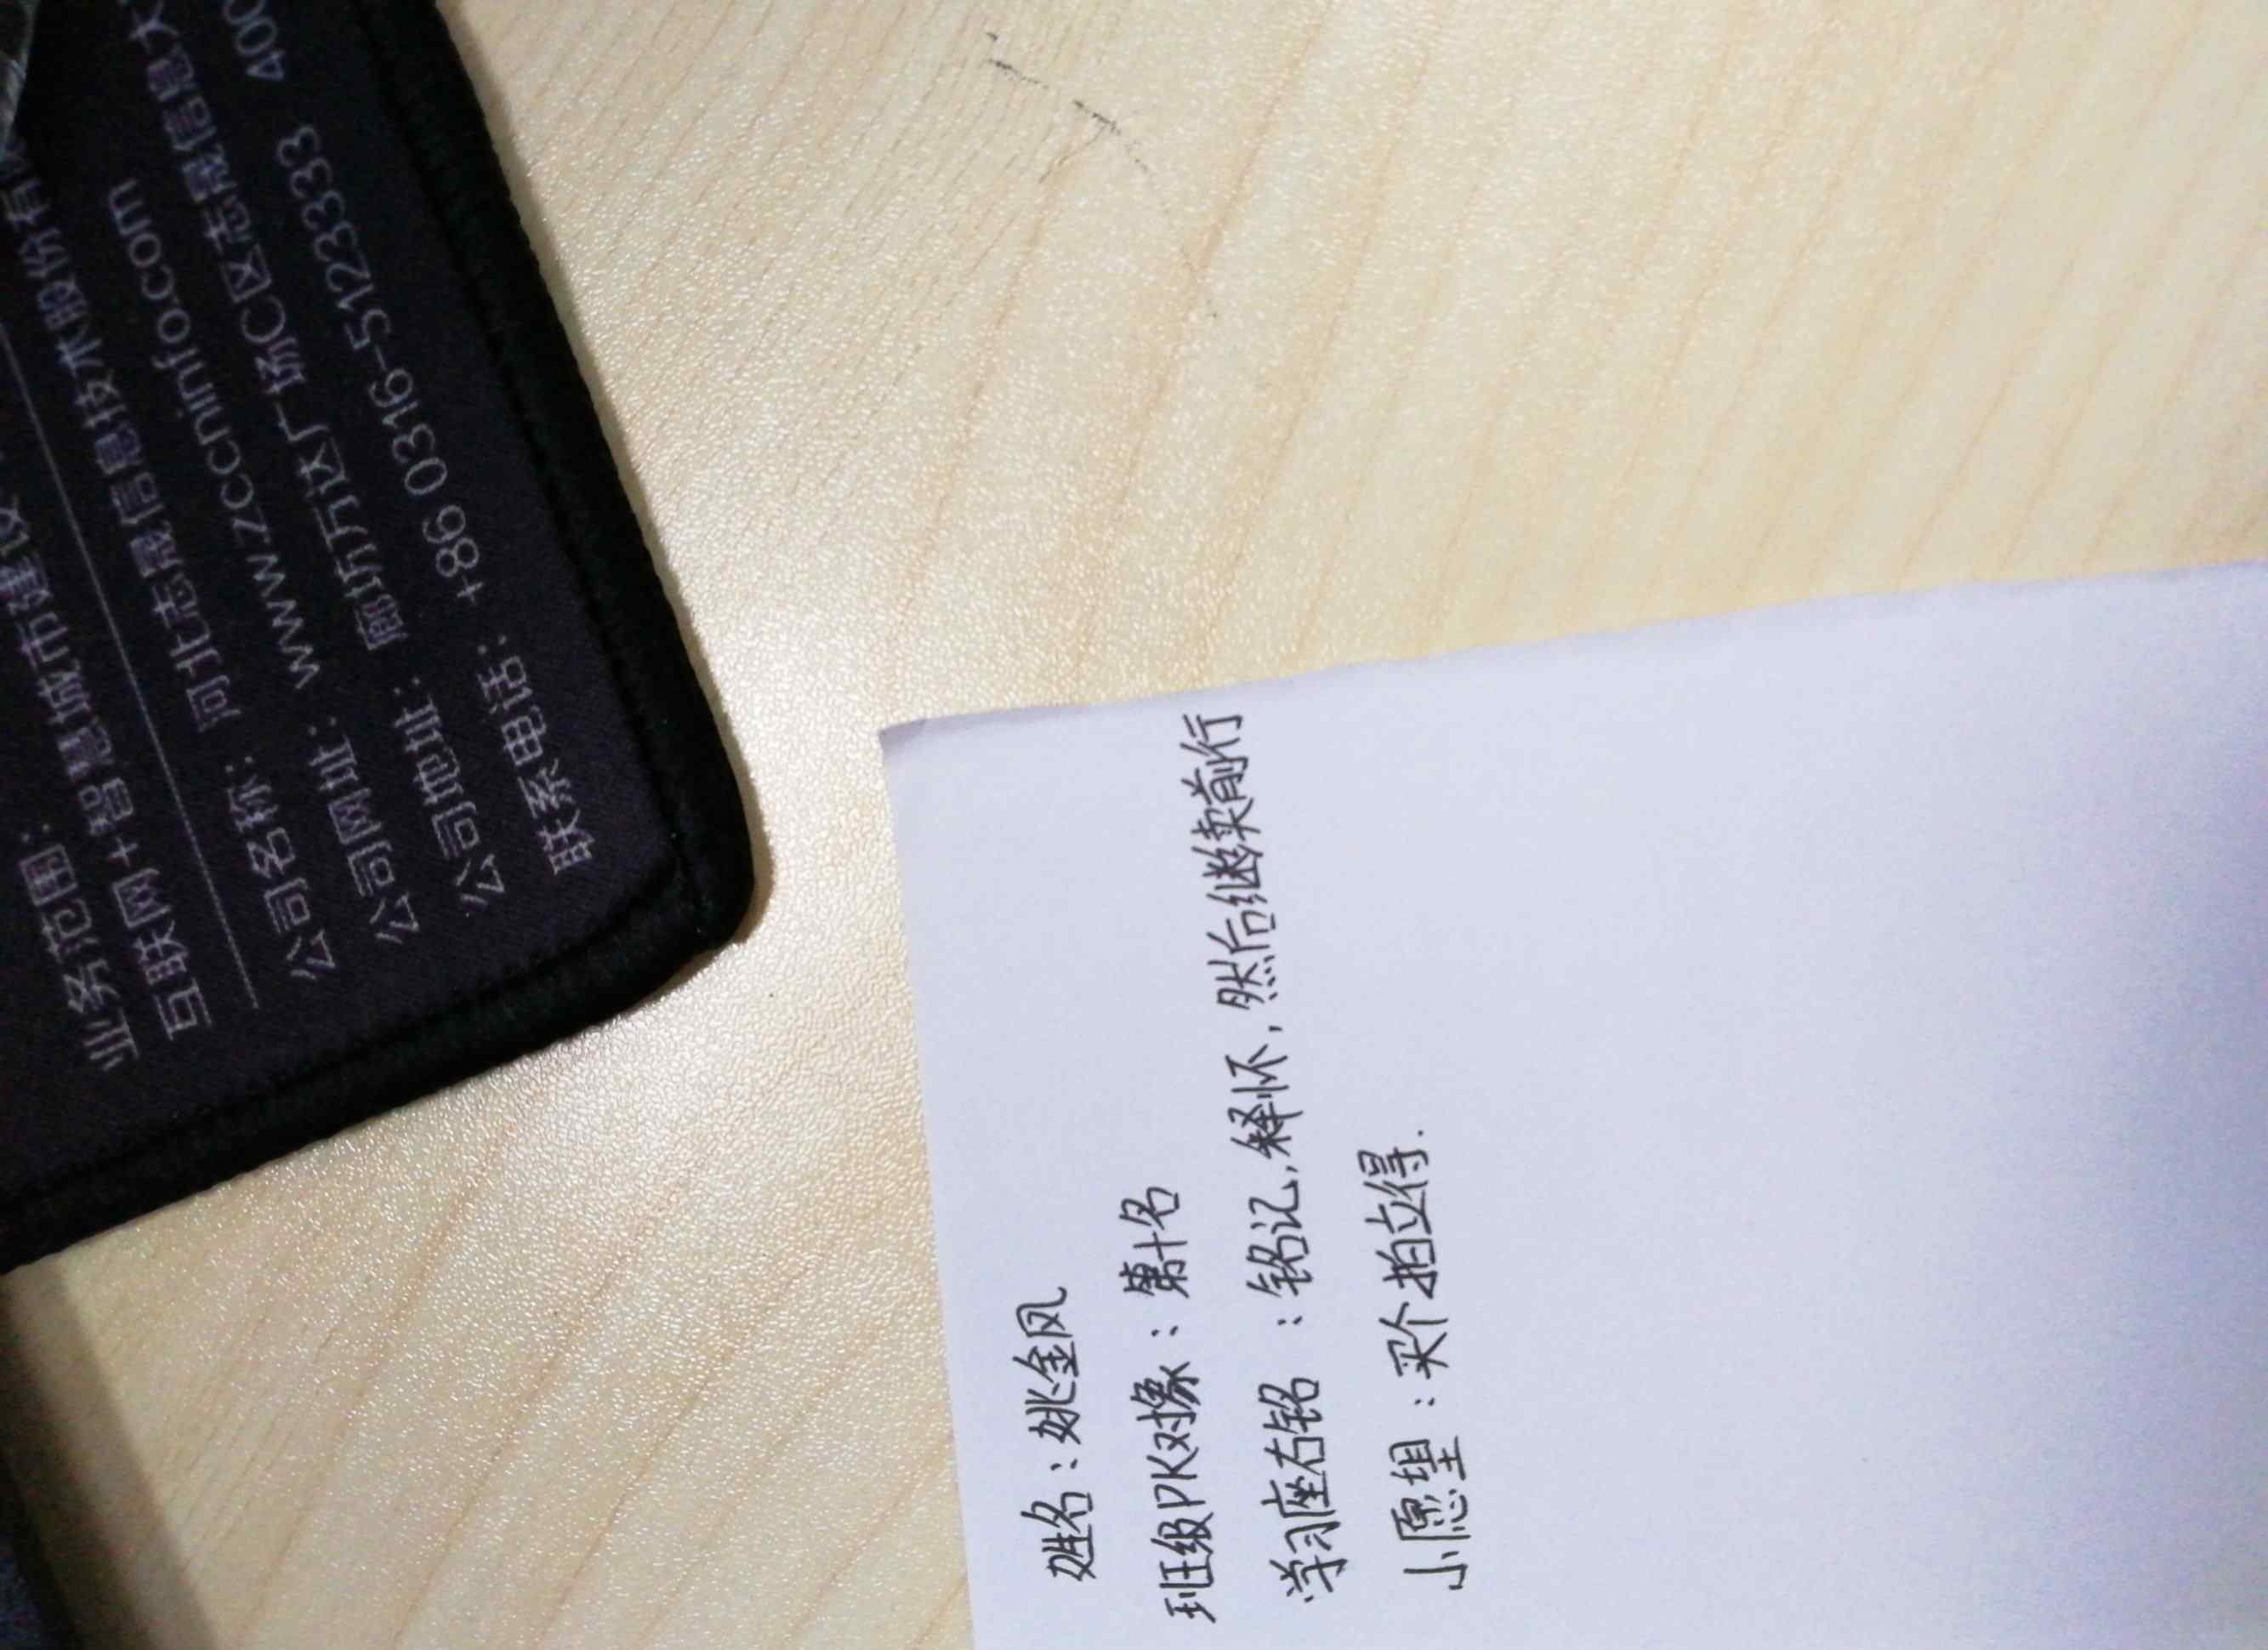 业务范围：
互联网+智慧城市建设
公司名称：河北志晟信息技术股份有限
公司网址：www.zccninfo.com
公司地址：廊坊万达广场C区志晟信息大
联系电话：+86 0316-5123333 400
姓名：姚金凤
班级PK对象：第十名
学习座右铭：铭记,释怀,然后继续前行
小愿望：买个拍立得.